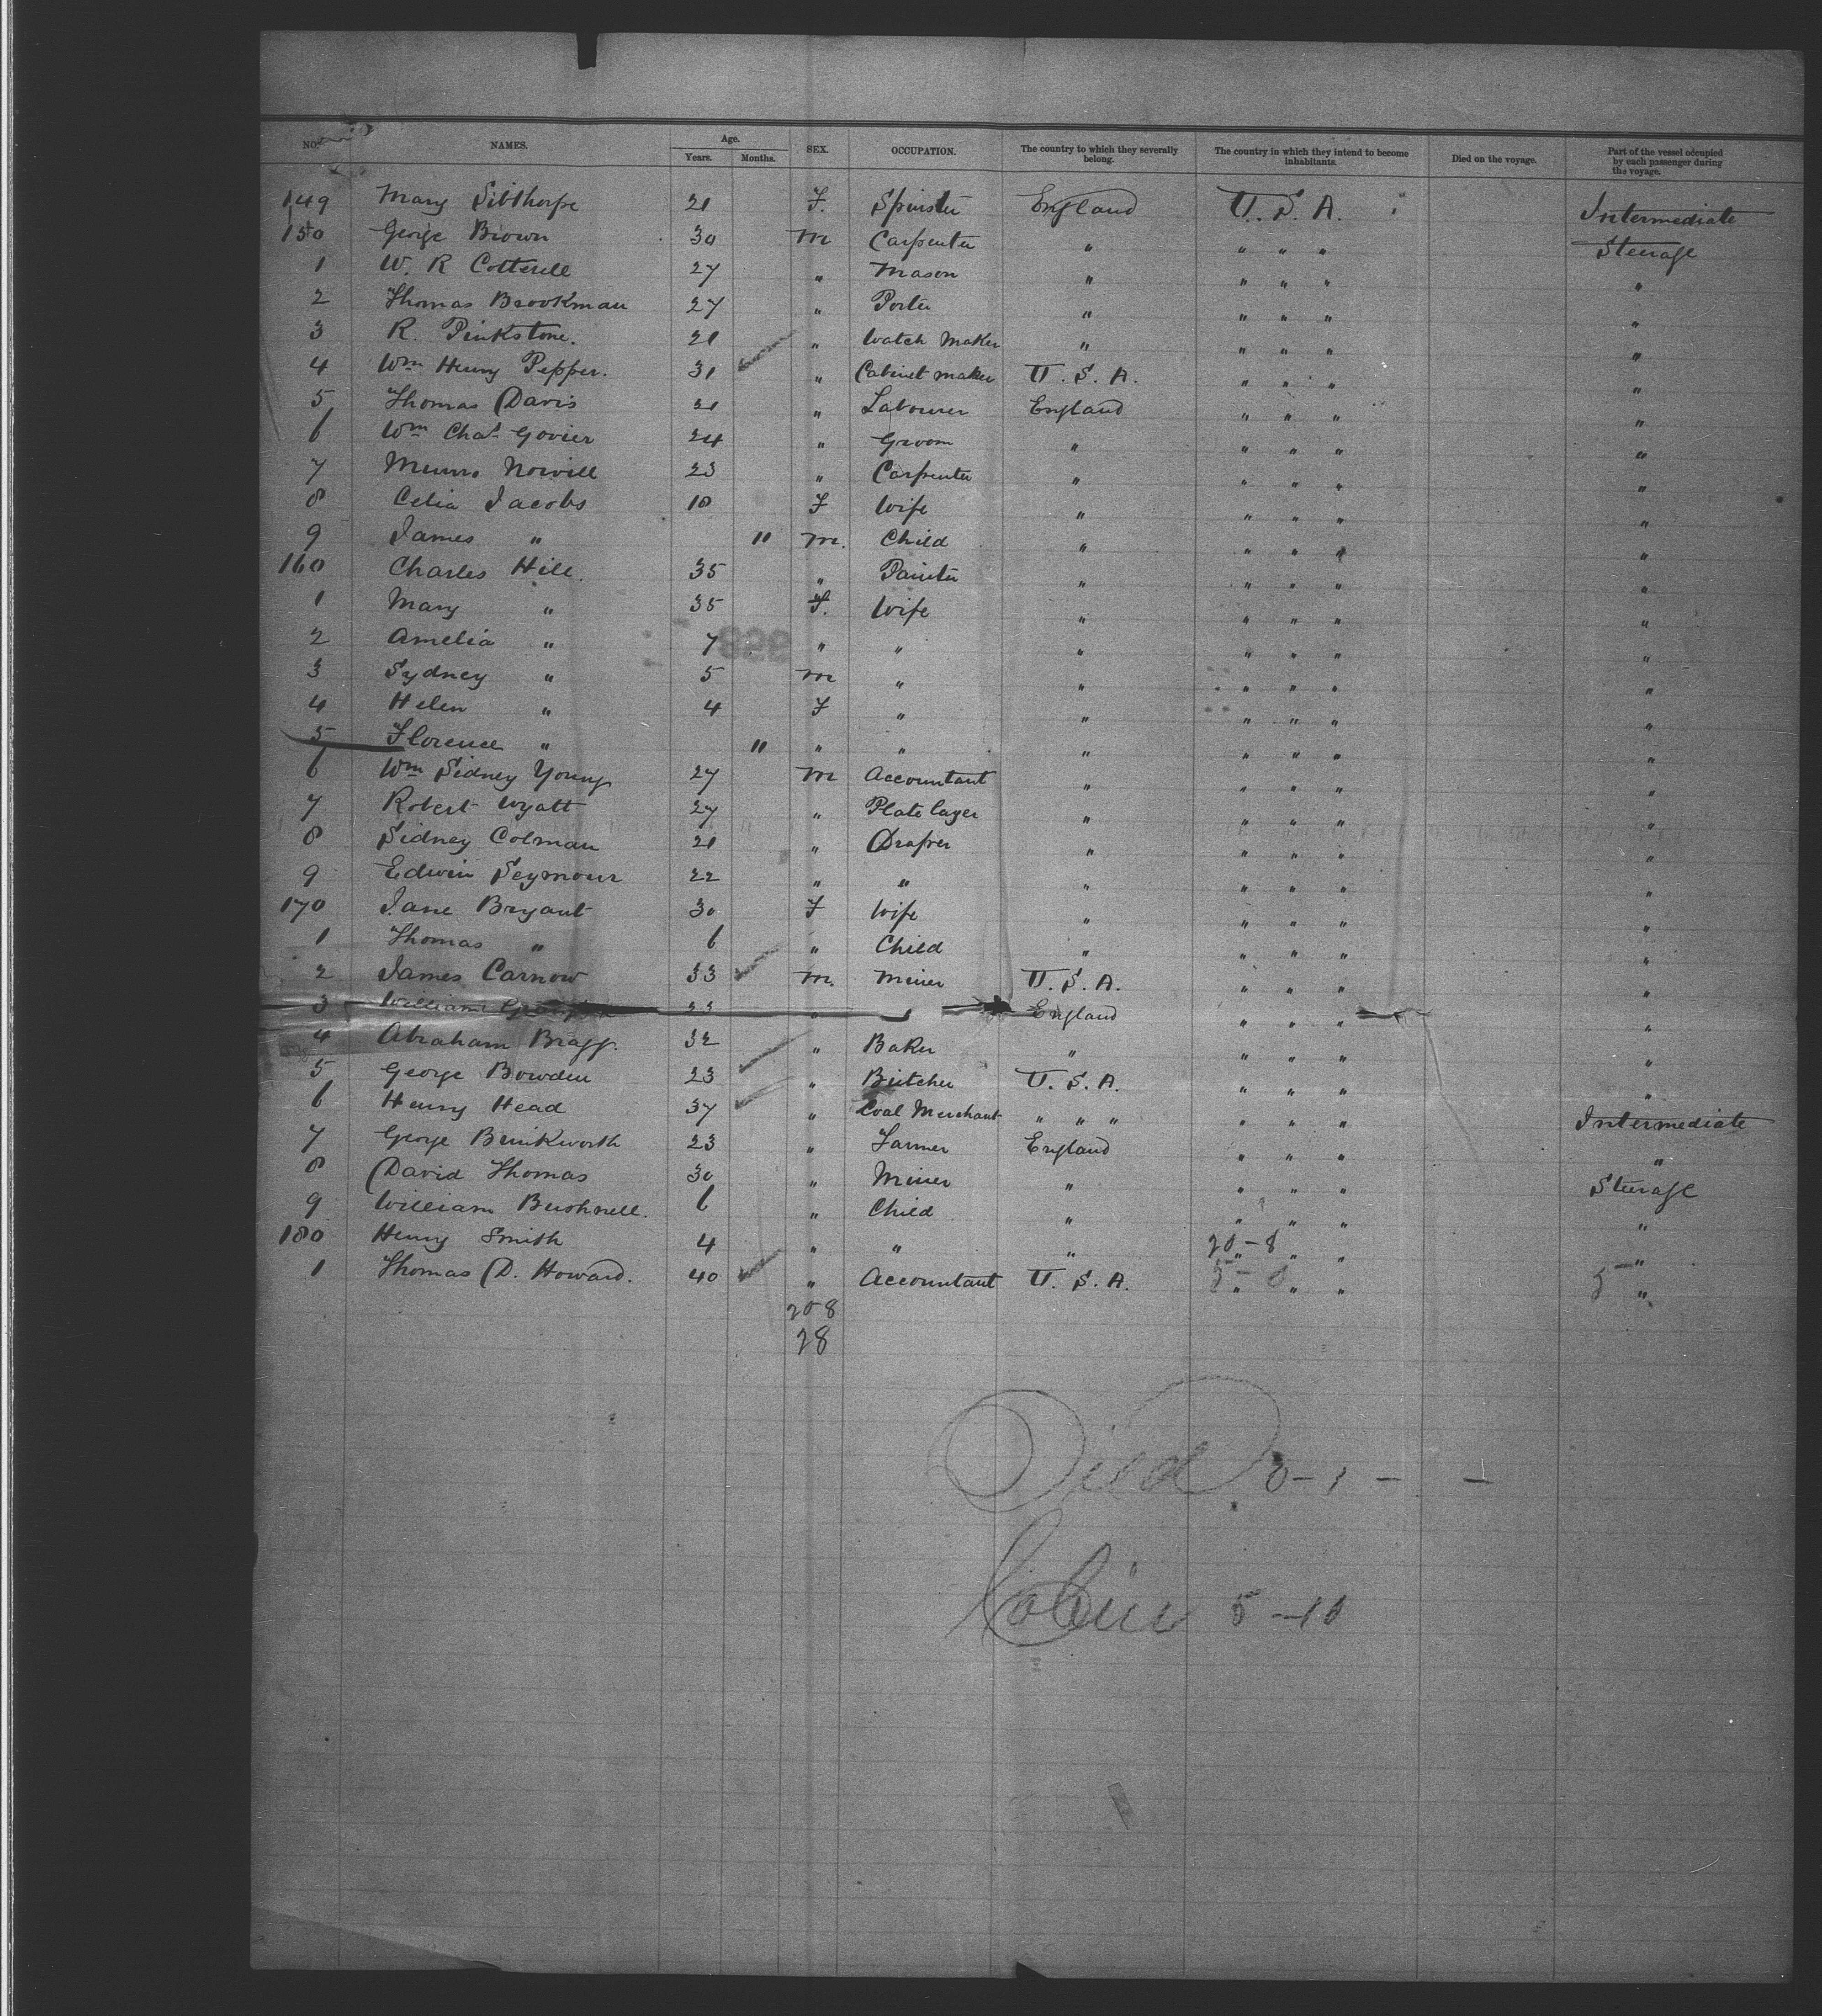 NO. NAMES. Age. Years. Months. SEX. OCCUPATION. The country to which they severally belong. The country in which they intend to become inhabitants. Died on the voyage. Part of the vessel occupied by each passenger during the voyage.
149 Mary Sibthorpe 21 F. Spinster England U. S. A. Intermediate
150 George Brown 30 M Carpenter " " " " Steerage
1 W. R Cotterell 27 " Mason " " " " "
2 Thomas Brookman 27 " Porter " " " " "
3 R. Pinkstone. 21 " Watch Maker " " " " "
4 Wm Henry Pepper. 31 " Cabinet maker U. S. A. " " " "
5 Thomas Davis 21 " Labourer England " " " "
6 Wm Chas Govier 24 " Groom " " " " "
7 Munro Norvill 23 " Carpenter " " " " "
8 Celia Jacobs 18 F Wife " " " " "
9 James " 11 M. Child " " " " "
160 Charles Hill. 35 " Painter " " " " "
1 Mary " 35 F. Wife " " " " "
2 Amelia " 7 " " " " " " "
3 Sydney " 5 M " " " " " "
4 Helen " 4 F " " " " " "
5 Florence " 11 " " " " " " "
6 Wm Sidney Young 27 M Accountant " " " " "
7 Robert Wyatt 27 " Plate layer " " " " "
8 Sidney Colman 21 " Draper " " " " "
9 Edwin Seymour 22 " " " " " " "
170 Jane Bryant 30 F Wife " " " " "
1 Thomas " 6 " Child " " " " "
2 James Carnow 33 M. Miner U. S. A. " " " "
3 William " England " " " "
4 Abraham Bragg. 32 " Baker " " " " "
5 George Bowden 23 " Butcher U. S. A. " " " "
6 Henry Head 37 " Coal Merchant " " " " " " Intermediate
7 George Brinkworth 23 " Farmer England " " " "
8 David Thomas 30 " Miner " " " " Steerage
9 William Bushnell. 6 " Child " " " " "
180 Henry Smith 4 " " " 20-8 " " " "
1 Thomas D. Howard. 40 " Accountant U. S. A. 5-0 " " " 5 "
208
28
Died 0-1 - -
Cabin 5-10